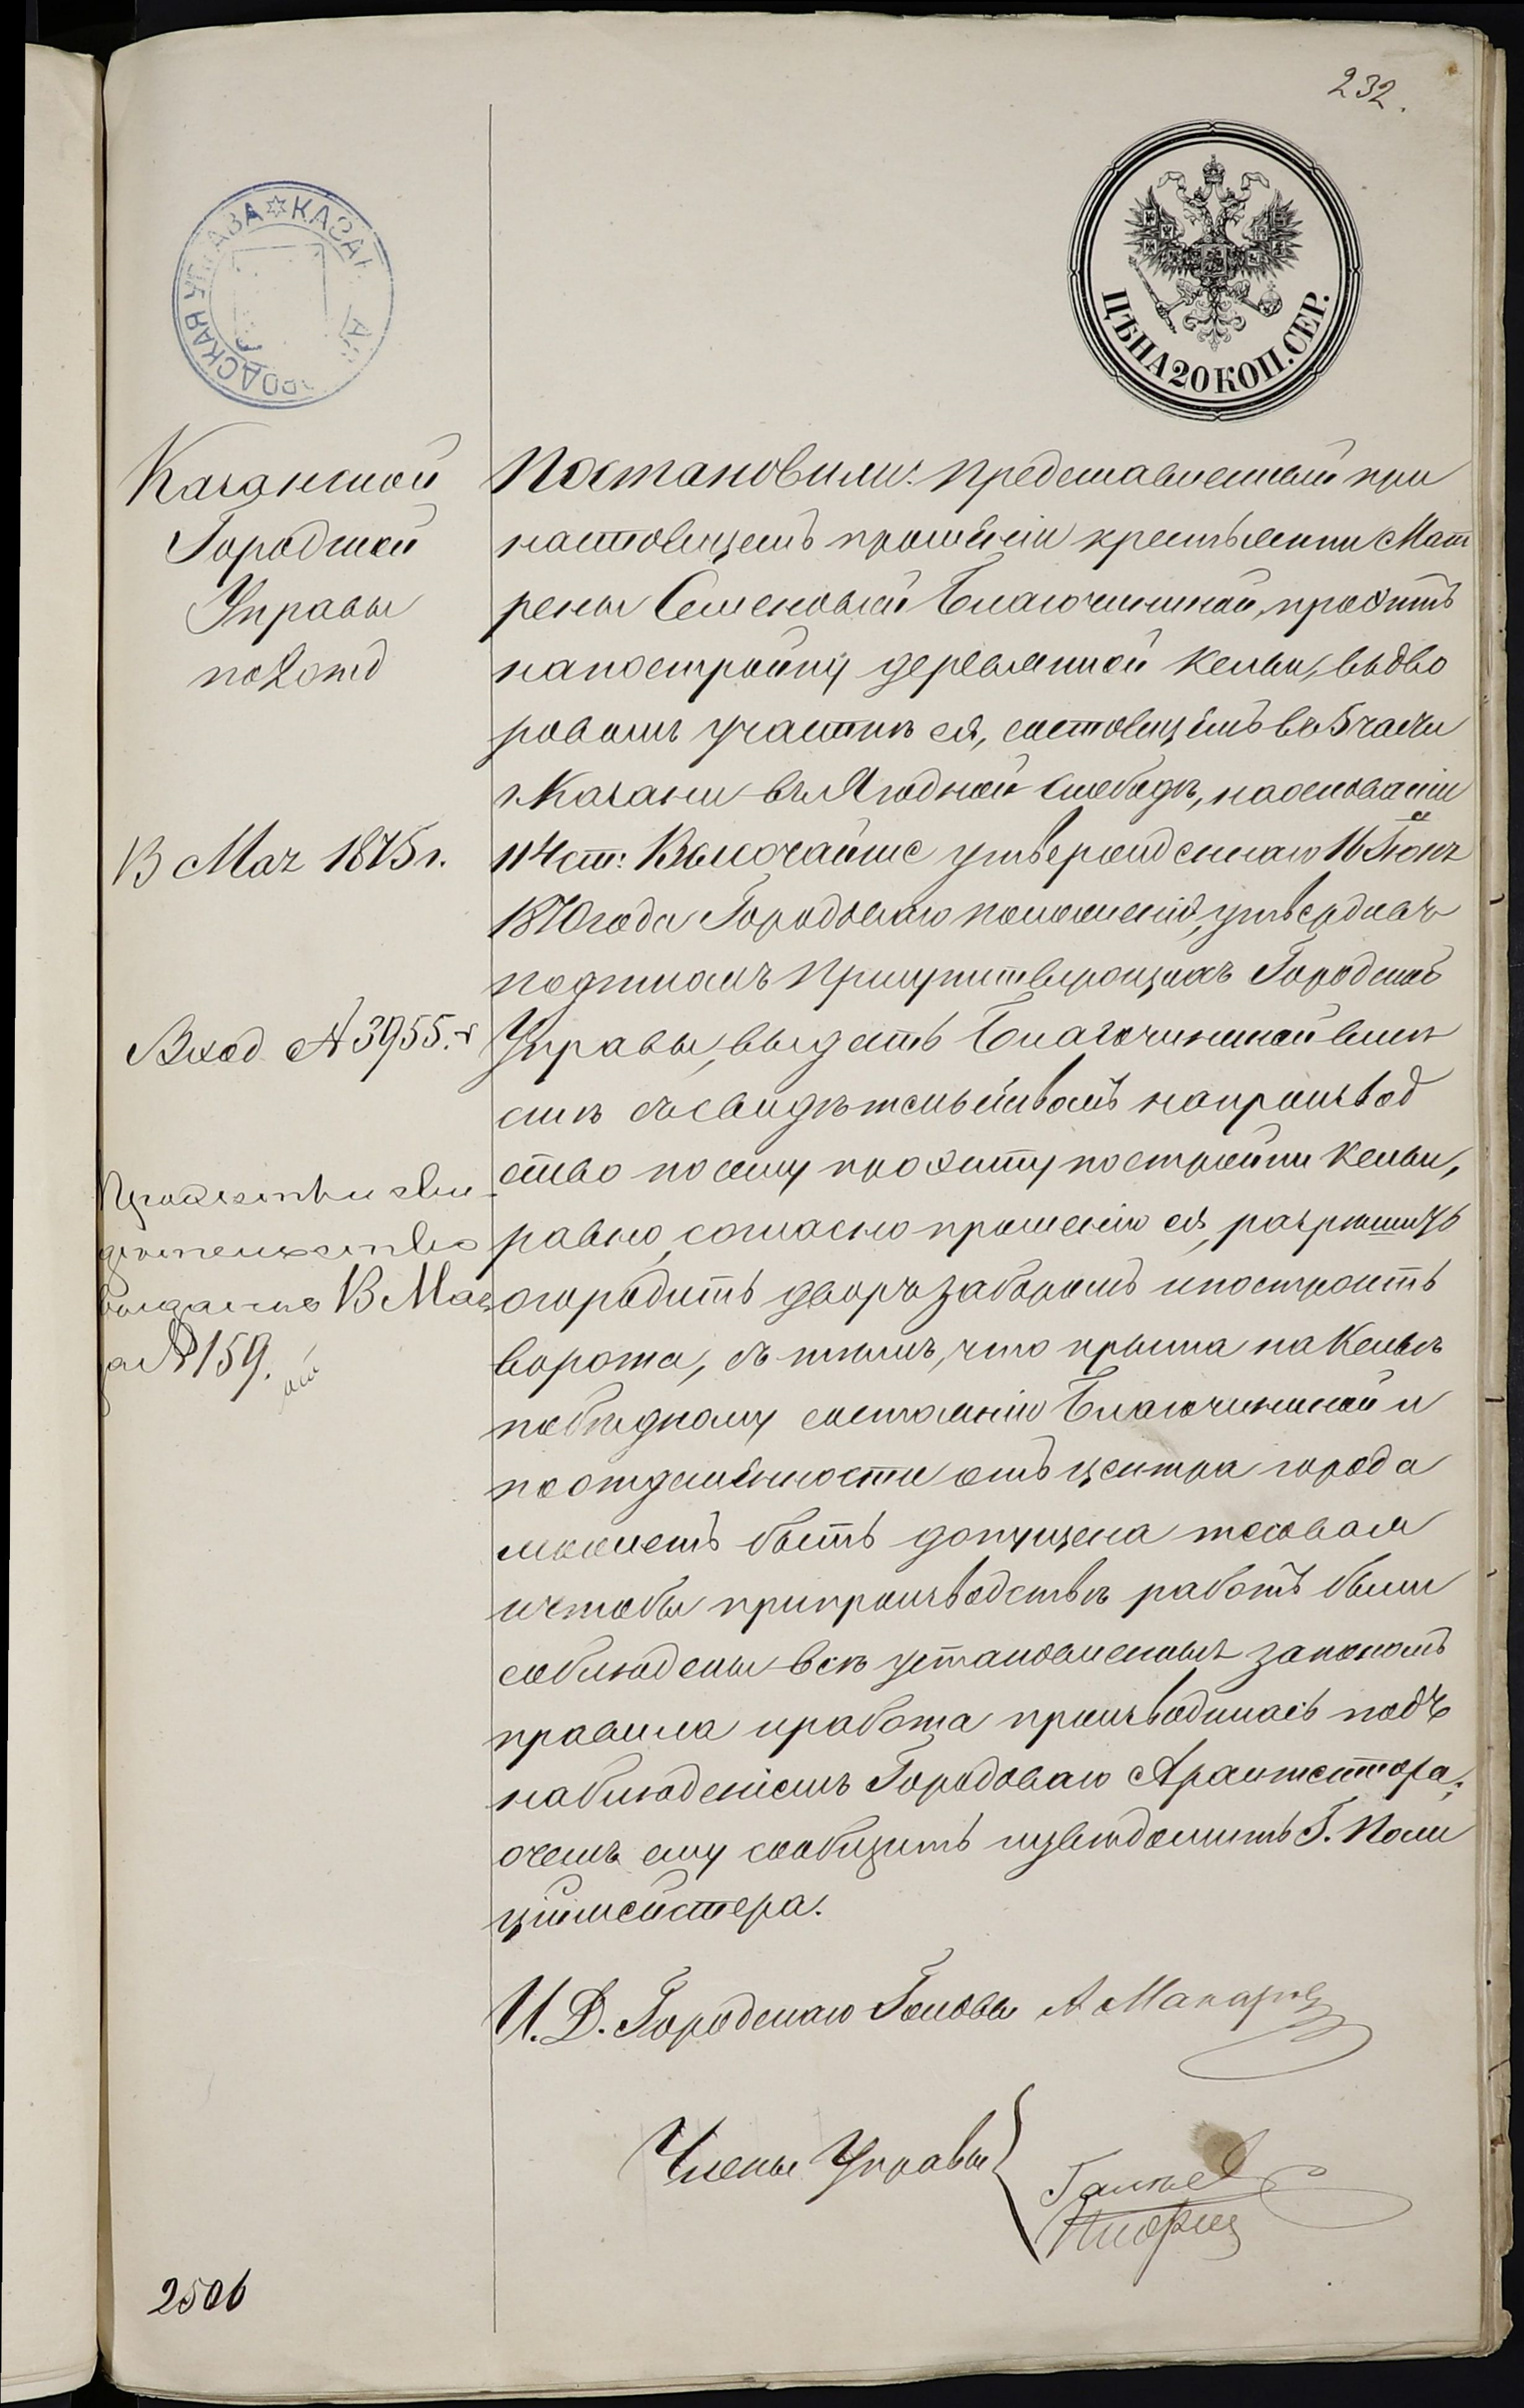 232.
КАЗАН АЯ ГОРОДСКАЯ УПРАВА
ЦѢНА 20 КОП. СЕР.
Казанской
Городской
Управы
по 2 отд
13 Мая 1875 г.
Вход № 3955.
Проэктъ и сви-
дѣтельство
выданыю 13 Мая
за № 159.
Постановили: Представленный при
настоящемъ прошеніи крестьянки Мат
рены Семеновой Благочинновой, проэктъ
на постройку деревянной кельи, въ дво
ровомъ участкѣ ея, состоящемъ въ 5 части
г. Казани въ Ягодной Слободѣ, на основаніи
114 ст: Высочайше утвержденнаго 16 Іюня
1870 года Городоваго положенія, утвердивъ
подписомъ Присутствующихъ Городской
Управы, выдать Благочинновой вмѣ
стѣ съ свидѣтельствомъ на производ
ство по сему проэкту постройки кельи,
равно, согласно прошенію ея, разрѣшить
огородить дворъ заборомъ и построить
ворота, съ тѣмъ, что крыша на кельѣ
по бѣдному состоянію Благочинновой и
по отдаленности отъ центра города
можетъ быть допущена тесовая
и чтобы при производствѣ работъ были
соблюдены всѣ установленныя закономъ
правила и работа производилась подъ
наблюденіемъ Городоваго Архитектора;
о чемъ ему сообщить и увѣдомить Г. Поли
ціймейстера.
И. Д. Городскаго Головы А Макаров
Члены Управы
2506